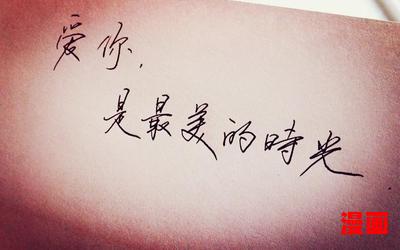 爱你,
是最美的時光
漫画